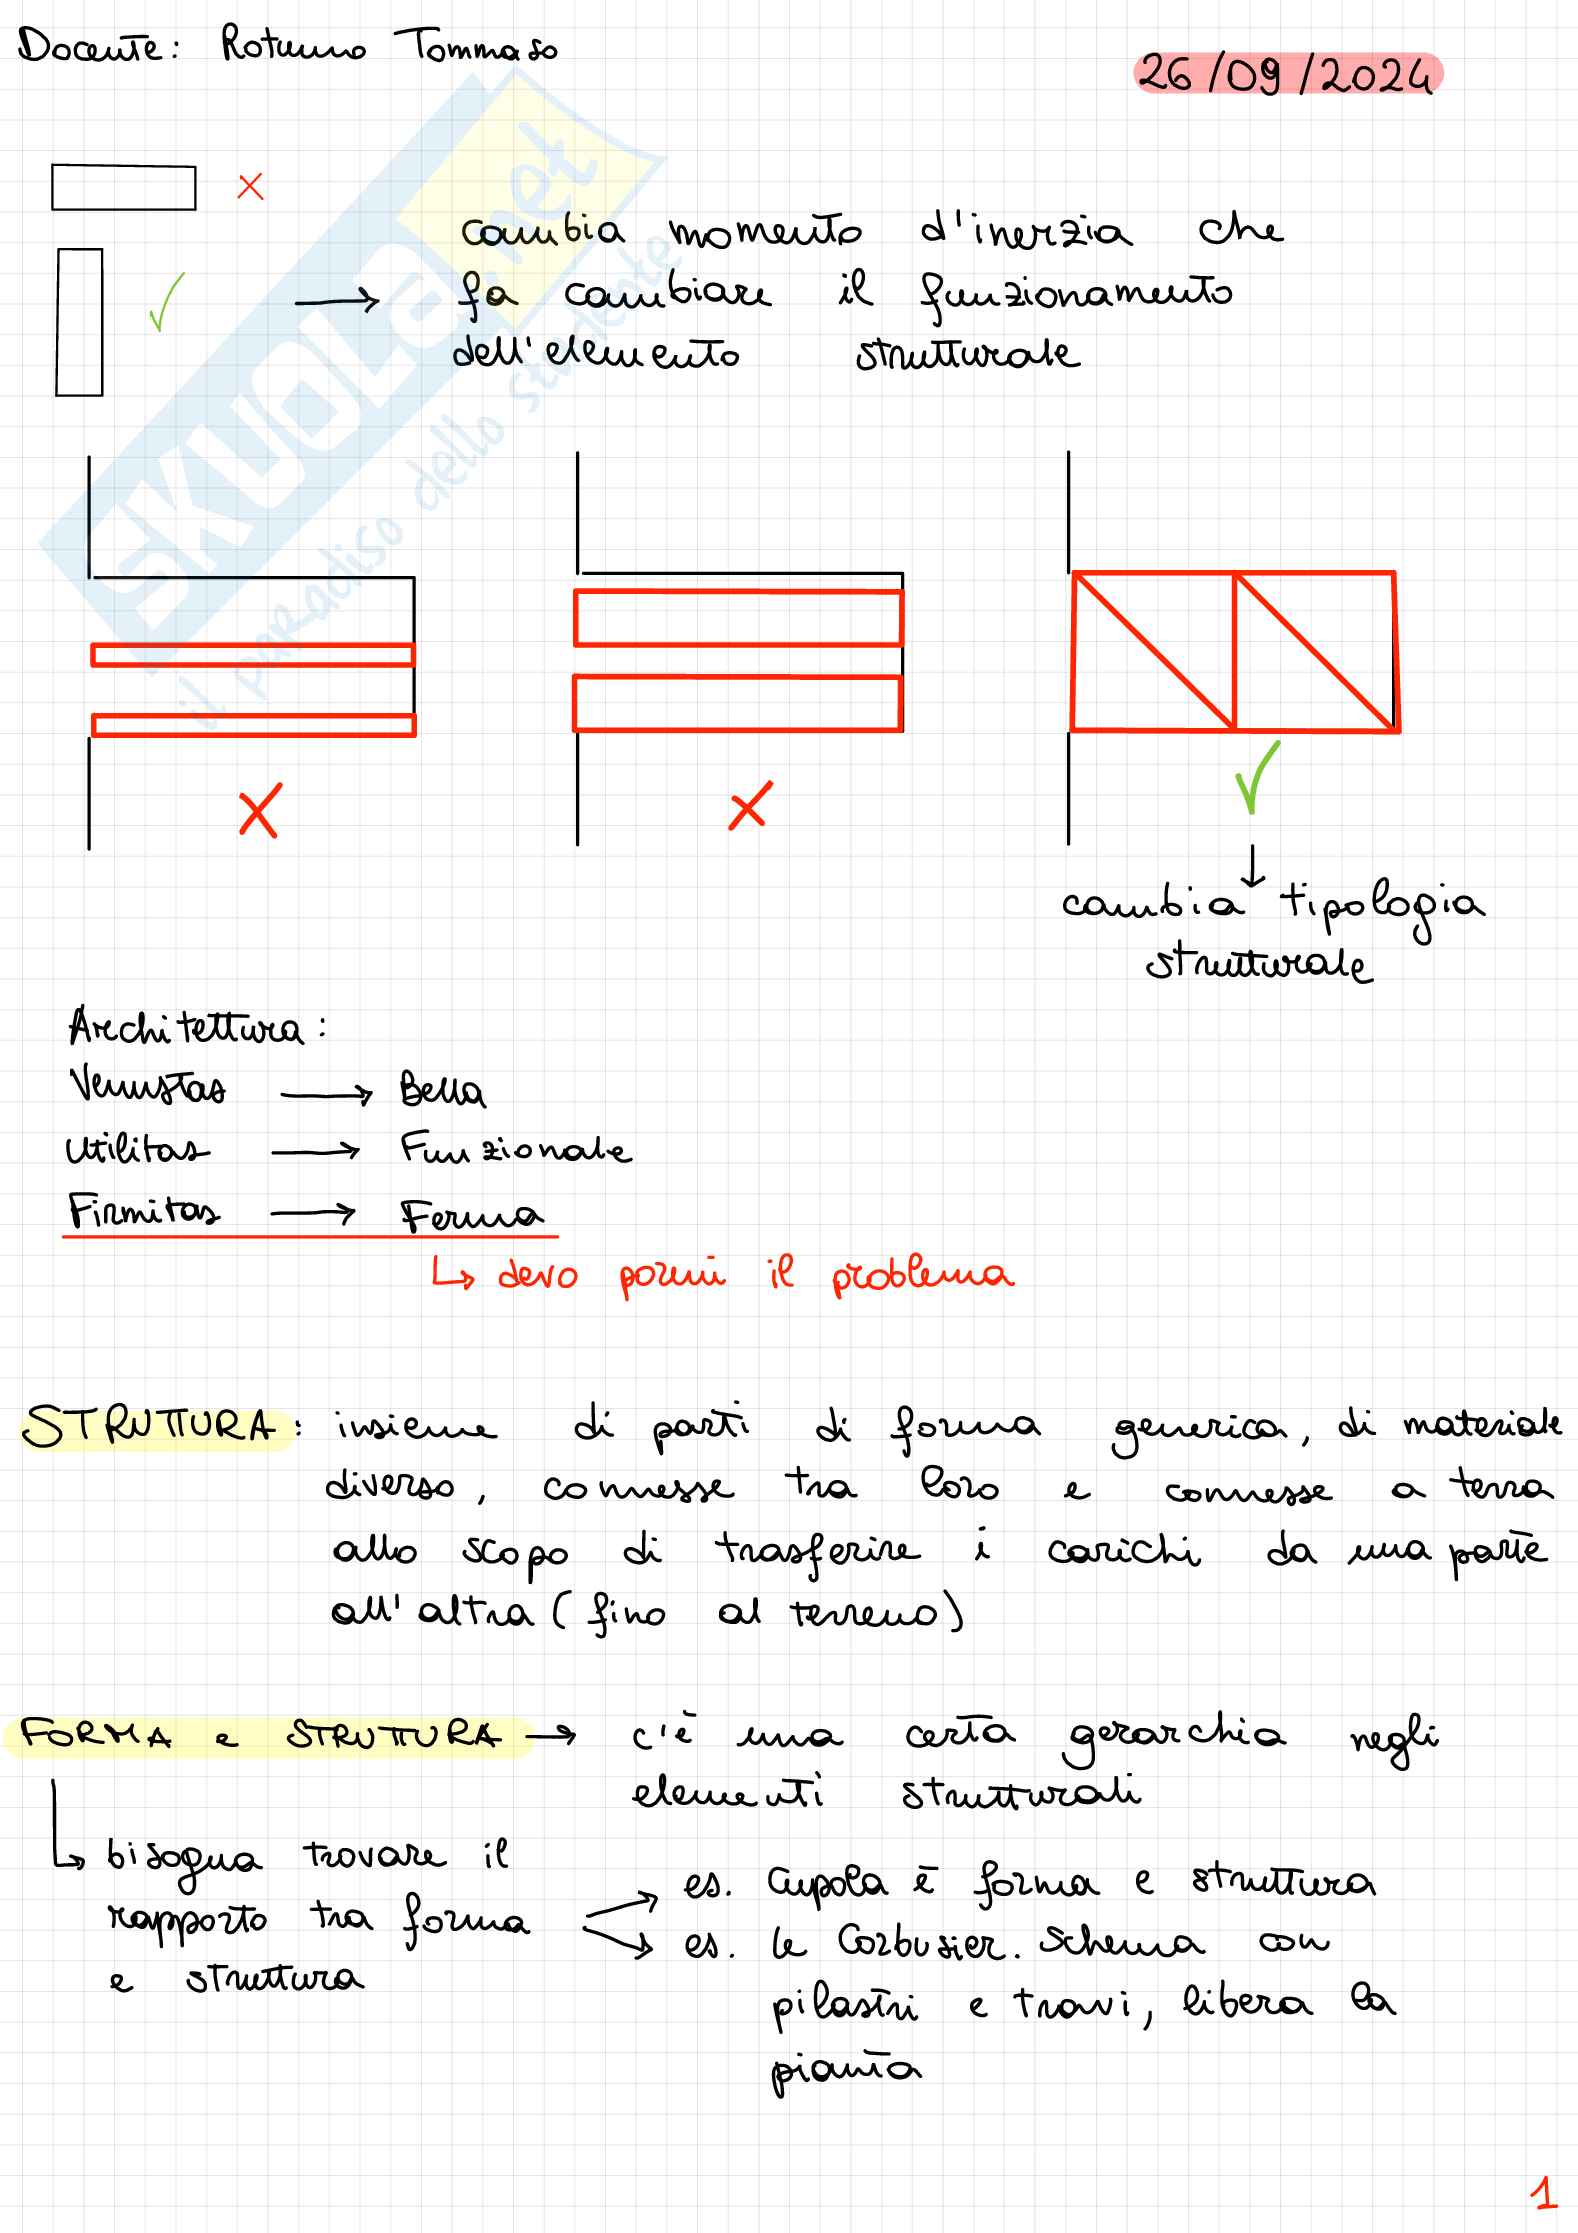 Docente: Rotunno Tommaso
26/09/2024
SKUOLA.net
il paradiso dello studente
cambia momento d'inerzia che
fa cambiare il funzionamento
dell'elemento strutturale
cambia tipologia
strutturale
Architettura:
Venustas → Bella
Utilitas → Funzionale
Firmitas → Ferma
↳ devo pormi il problema
STRUTTURA: insieme di parti di forma generica, di materiale
diverso, connesse tra loro e connesse a terra
allo scopo di trasferire i carichi da una parte
all'altra (fino al terreno)
FORMA e STRUTTURA → c'è una certa gerarchia negli
elementi strutturali
↳ bisogna trovare il
rapporto tra forma
e struttura
es. Cupola è forma e struttura
es. le Corbusier. Schema con
pilastri e travi, libera la
pianta
1